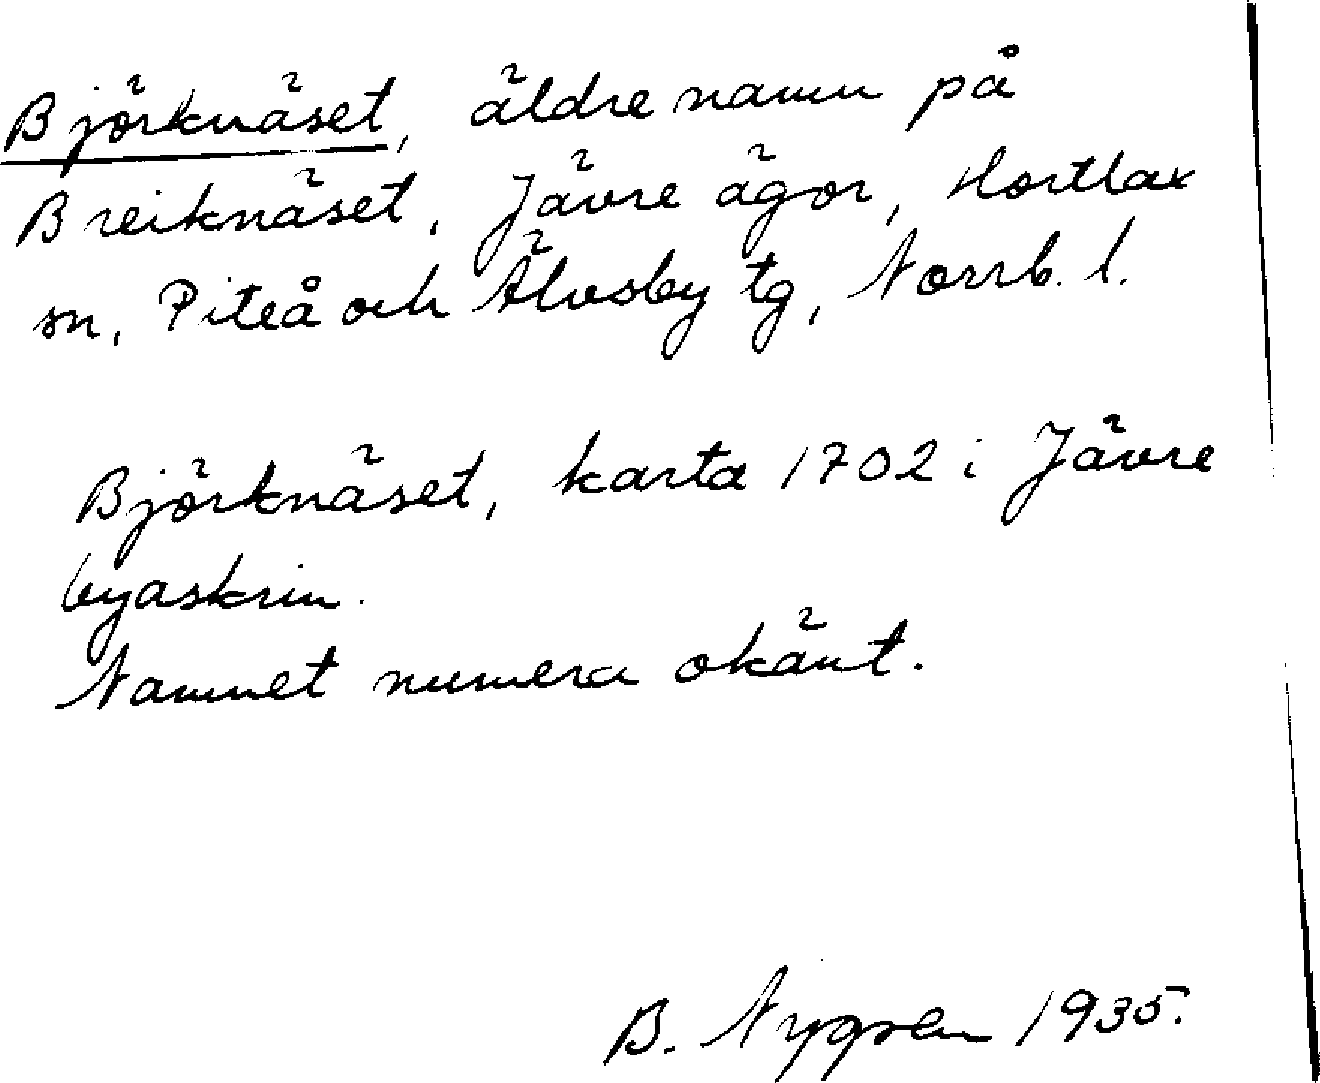 Björknäset, äldre namn på
Breiknäset, Jävre ägor, Hortlax
sn, Piteå och Älvsby tg, Norrb. l.
Björknäset, karta 1702 i Jävre
byaskrin.
Namnet numera okänt.
B. Nygren 1935.